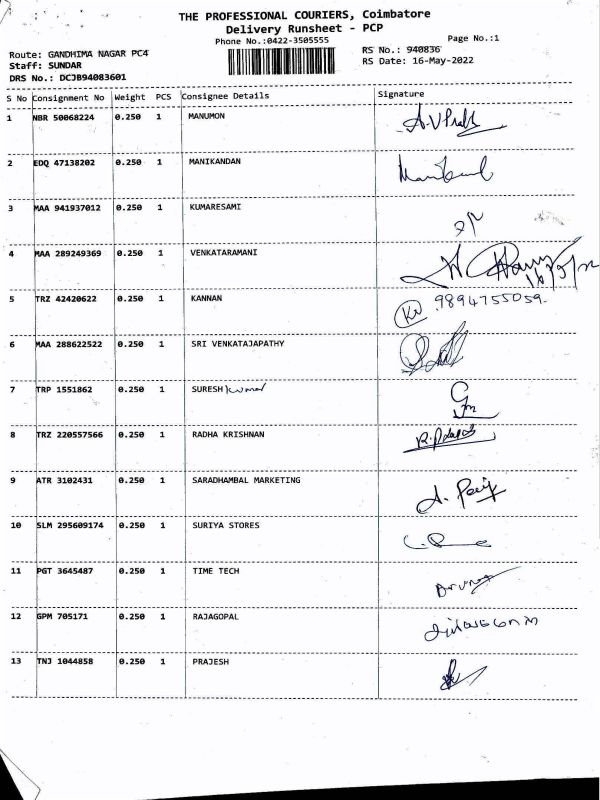 THE PROFESSIONAL COURIERS, Coimbatore
Delivery Runsheet - PCP
Phone No.:0422-3505555
Page No.:1
Route: GANDHIMA NAGAR PC4
RS No.: 940836
Staff: SUNDAR
RS Date: 16-May-2022
DRS No.: DCJB94083601
S No Consignment No Weight PCS Consignee Details Signature
1 NBR 50068224 0.250 1 MANUMON
2 EDQ 47138202 0.250 1 MANIKANDAN
3 MAA 941937012 0.250 1 KUMARESAMI
4 MAA 289249369 0.250 1 VENKATARAMANI
5 TRZ 42420622 0.250 1 KANNAN 9894755059
6 MAA 288622522 0.250 1 SRI VENKATAJAPATHY
7 TRP 1551862 0.250 1 SURESH kumar
8 TRZ 220557566 0.250 1 RADHA KRISHNAN
9 ATR 3102431 0.250 1 SARADHAMBAL MARKETING
10 SLM 295609174 0.250 1 SURIYA STORES
11 PGT 3645487 0.250 1 TIME TECH
12 GPM 705171 0.250 1 RAJAGOPAL
13 TNJ 1044858 0.250 1 PRAJESH